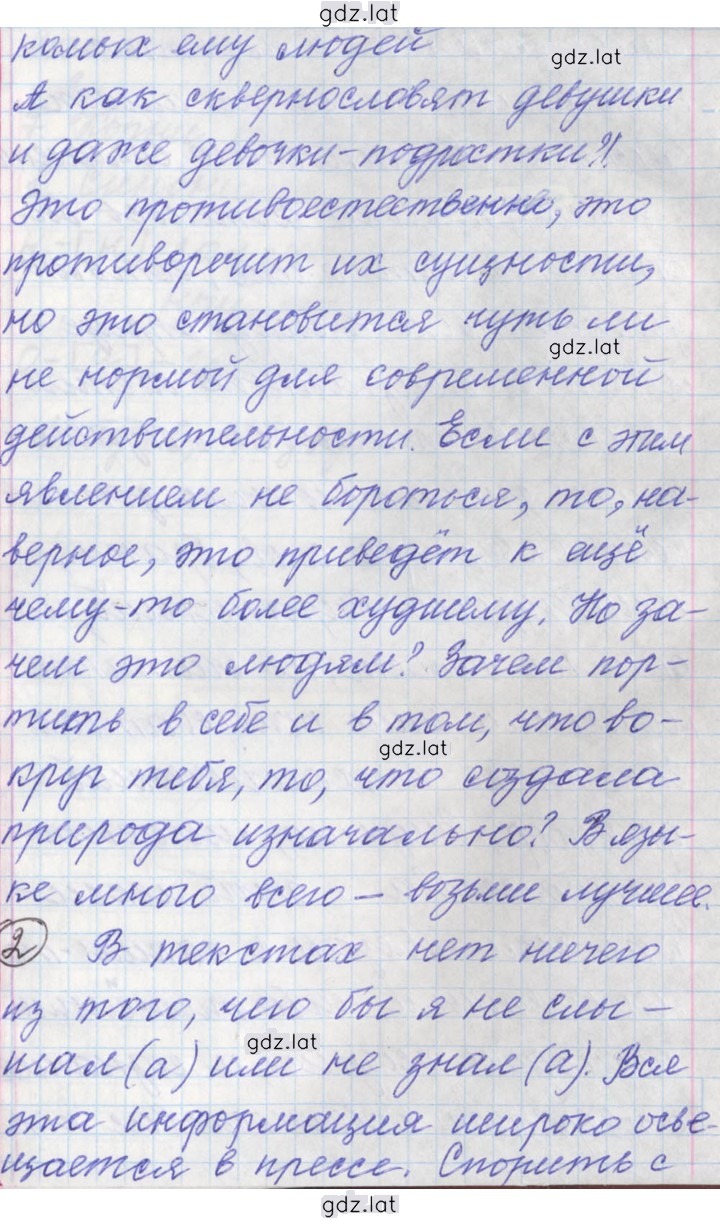 gdz.lat
комых ему людей
gdz.lat
А как сквернословят девушки
и даже девочки-подростки?!
Это противоестественно, это
противоречит их сущности,
но это становится чуть ли
gdz.lat
не нормой для современной
действительности. Если с этим
явлением не бороться, то, на-
верное, это приведёт к ещё
чему-то более худшему. Но за-
чем это людям? Зачем пор-
тить в себе и в том, что во-
gdz.lat
круг тебя, то, что создала
природа изначально? В язы-
ке много всего – возьми лучшее.
2 В текстах нет ничего
из того, чего бы я не слы-
gdz.lat
шал(а) или не знал(а). Вся
эта информация широко осве-
щается в прессе. Спорить с
gdz.lat